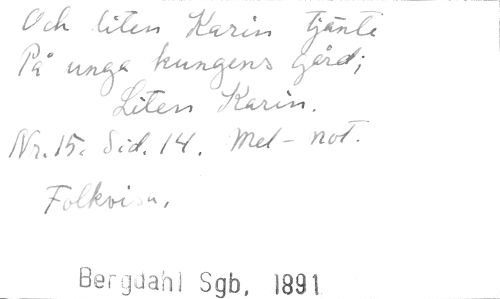 Och liten Karin tjänte
På unga kungens gård;
Liten Karin.
Nr. 15. Sid. 14. Mel-not.
Folkvisa.
Bergdahl Sgb, 1891